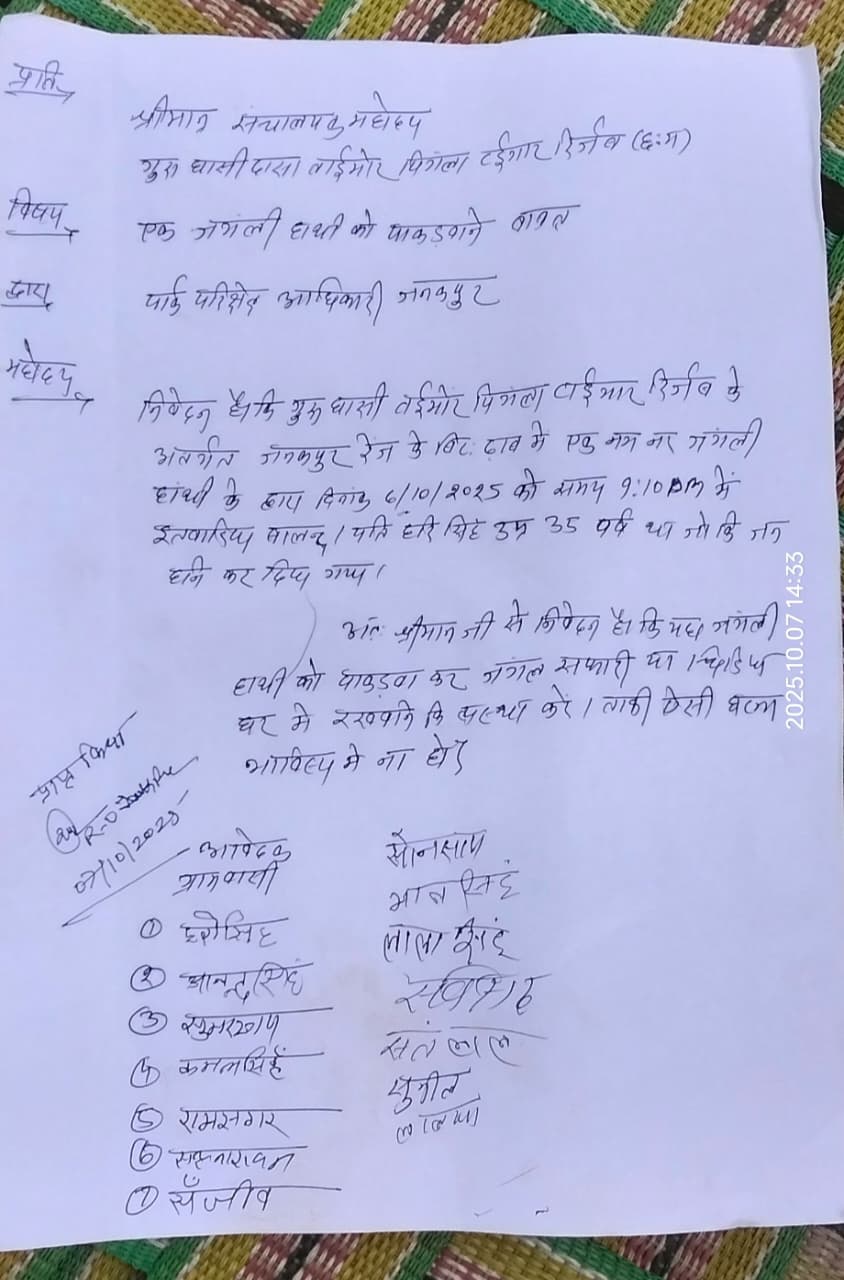 प्रति,
श्रीमान संचालक महोदय
गुरु घासीदास ताईमोर पिंगला टईगार रिर्जव (छ:ग)
विषय
एक जगंली हाथी को पाकडवाने बावत
द्वारा
पार्क परिक्षेत्र आधिकारी जनकपुर
महोदय
निवेदन है कि गुरु घासी तईमोर पिंगला टाईगार रिर्जव के
अतर्गत जनकपुर रेंज के में एक नग नर जगंली
हांथी के द्वारा दिनांक 6/10/2025 को समय 9:10 pm में
पति हरि सिंह उम्र 35 वर्ष था जो कि जन
हानि कर दिया गया।
अंतः श्रीमान जी से निवेदन है कि यह जगंली
हाथी को पाकडवा कर जगंल सफारी या चिडिया
घर मे रखवाने कि व्यस्था करें। ताकी ऐसी घटना
भाविष्य मे ना हो।
प्राप्त किया
R-O
07/10/2025
आवेदक
ग्रामवासी
① हरीसिंह
② आनन्द्रसिंह
③
④ कमलसिहं
⑤ रामसगर
⑥ सत्यनारायन
⑦ सँजीव
सोनसाय
भान सिहं
लाला सिंह
सतं लाल
सुनील
2025.10.07 14:33